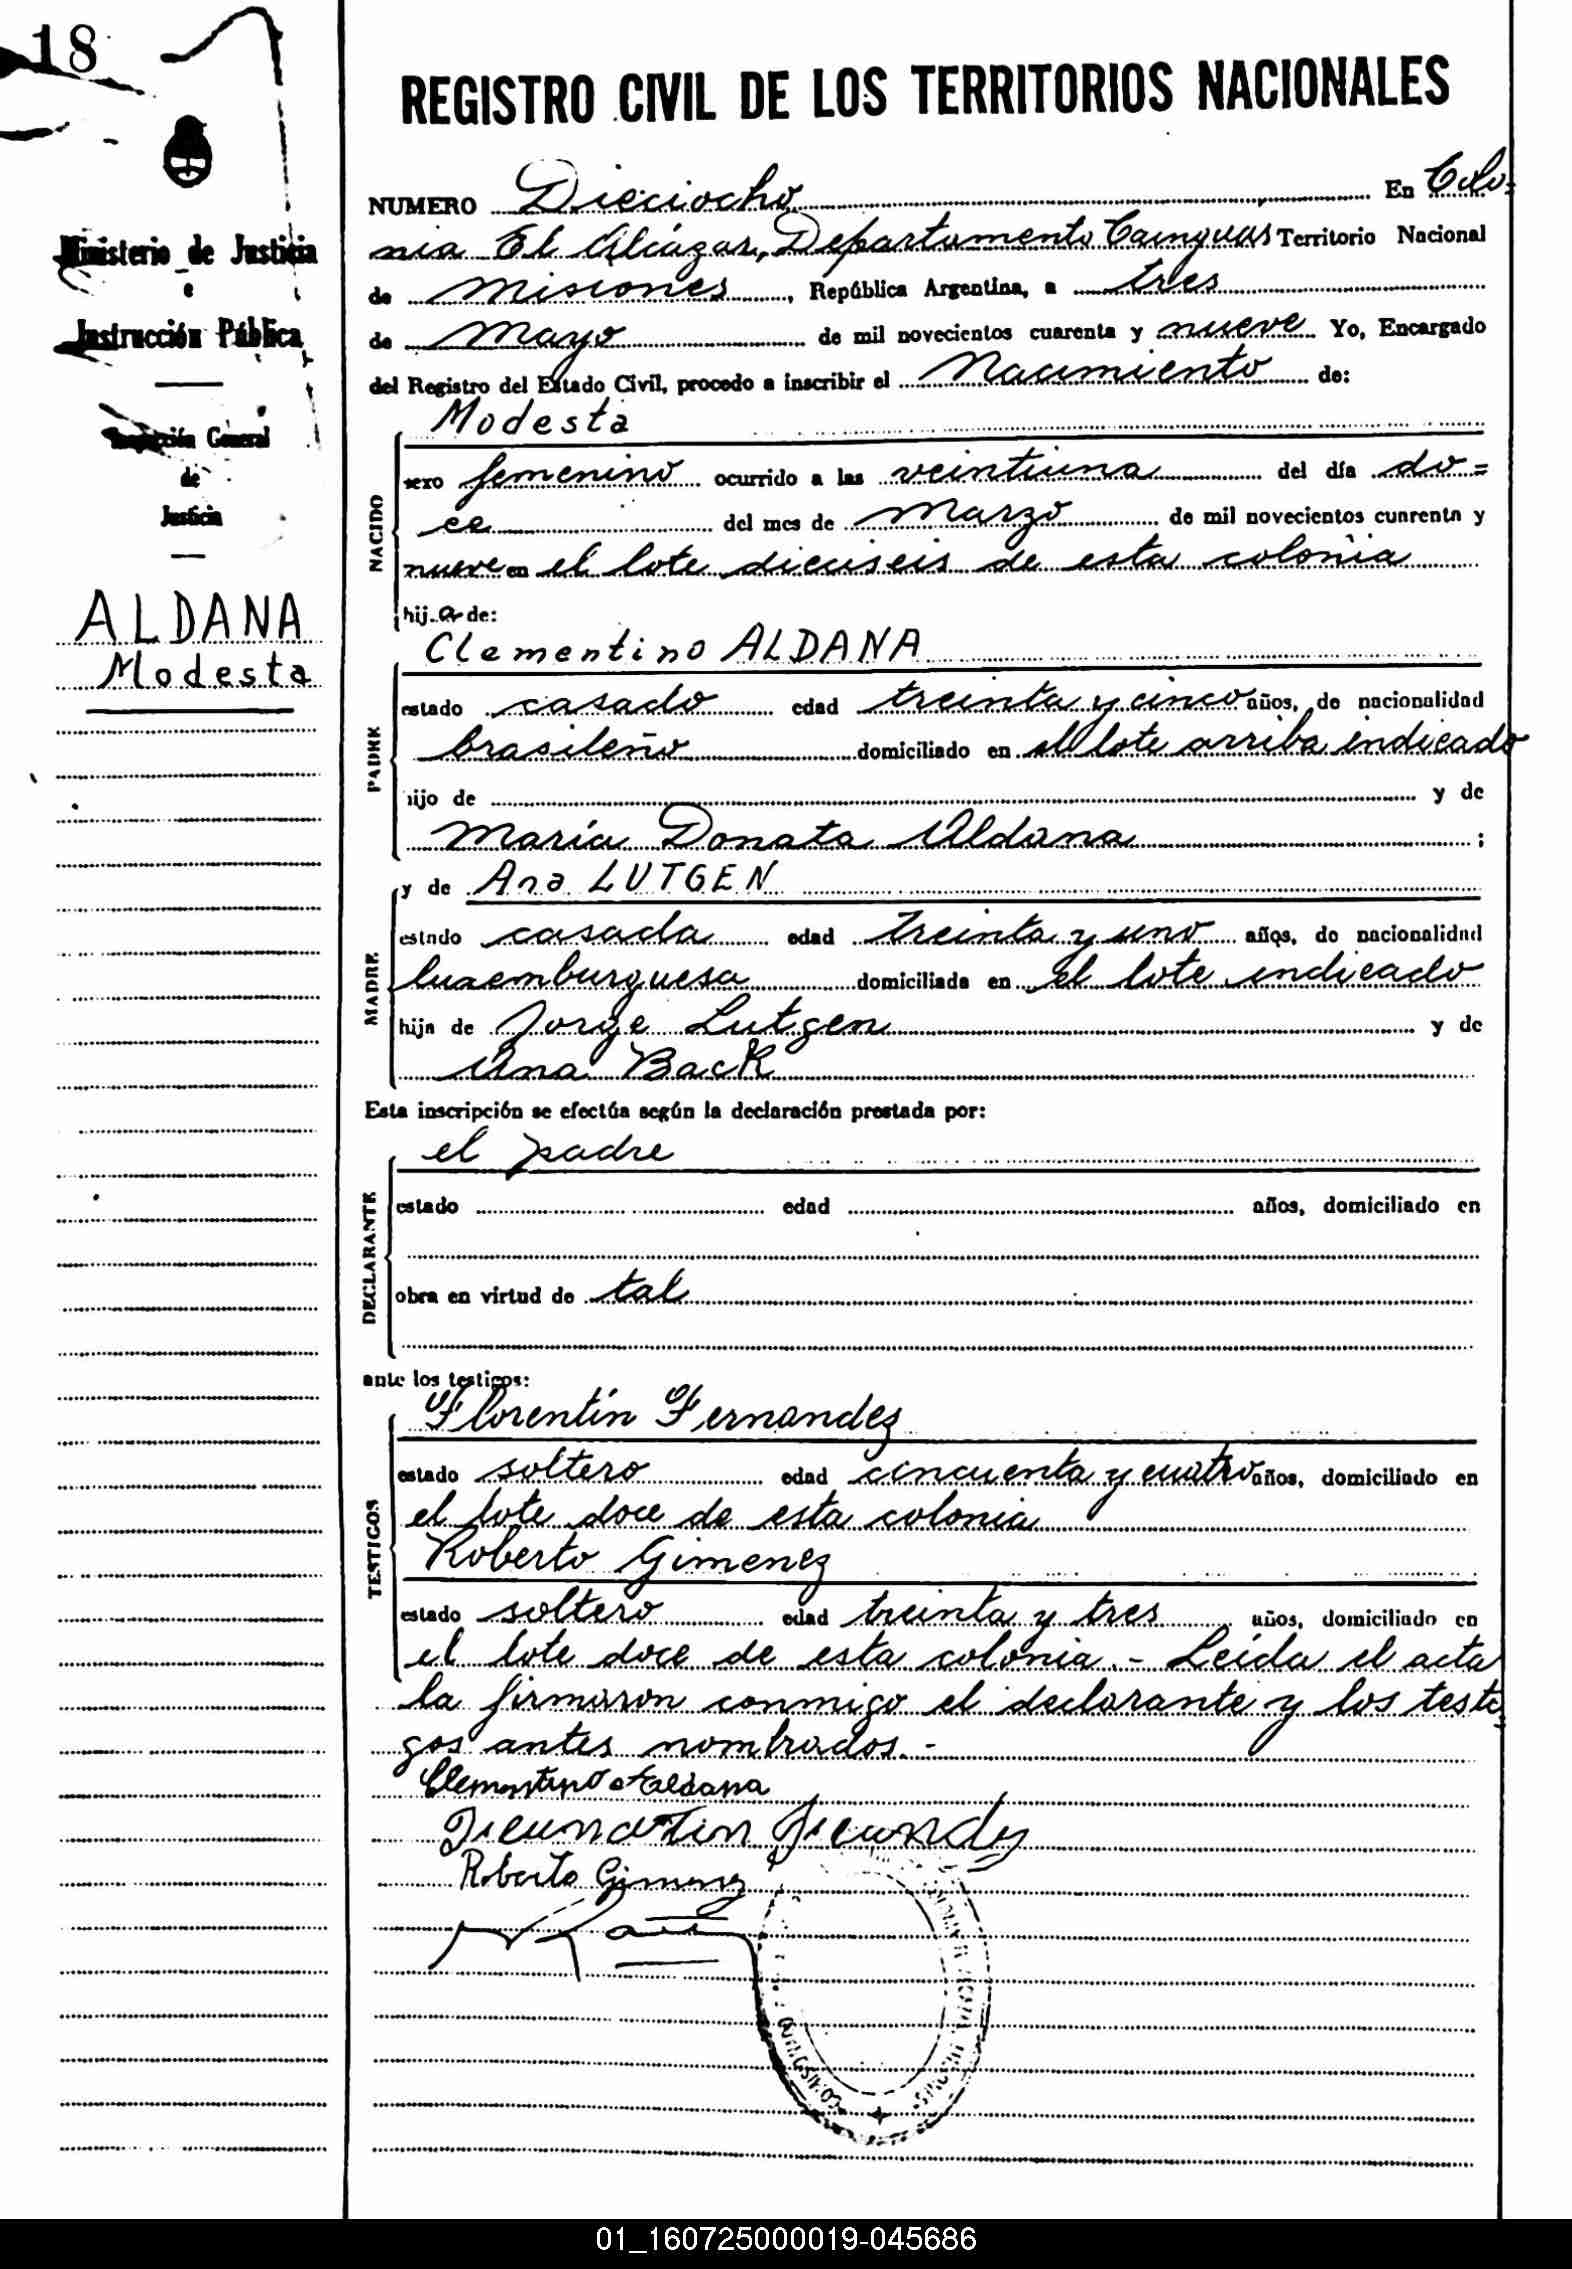 18
Ministerio de Justicia
e
Instrucción Pública
Inspección General
de
Justicia
ALDANA
Modesta
REGISTRO CIVIL DE LOS TERRITORIOS NACIONALES
NUMERO Dieciocho En Colo=
nia El Alcázar, Departamento Cainguas Territorio Nacional
de Misiones, República Argentina, a tres
de Mayo de mil novecientos cuarenta y nueve Yo, Encargado
del Registro del Estado Civil, procedo a inscribir el Nacimiento de:
Modesta
NACIDO
sexo femenino ocurrido a las veintiuna del día do=
ce del mes de Marzo de mil novecientos cuarenta y
nueve en el lote dieciseis de esta colonia
hija de:
Clementino ALDANA
PADRE
estado casado edad treinta y cinco años, de nacionalidad
brasileño domiciliado en el lote arriba indicado
hijo de y de
María Donata Aldana;
y de Ana LUTGEN
MADRE
estado casada edad treinta y uno años, de nacionalidad
luxemburguesa domiciliada en el lote indicado
hija de Jorge Lutgen y de
Ana Back
Esta inscripción se efectúa según la declaración prestada por:
el padre
DECLARANTE
estado edad años, domiciliado en
obra en virtud de tal
ante los testigos:
Florentín Fernandez
TESTIGOS
estado soltero edad cincuenta y cuatro años, domiciliado en
el lote doce de esta colonia
Roberto Gimenez
estado soltero edad treinta y tres años, domiciliado en
el lote doce de esta colonia.- Leída el acta
la firmaron conmigo el declarante y los testi=
gos antes nombrados.-
Clementino Aldana
Roberto Gimenez
01_160725000019-045686